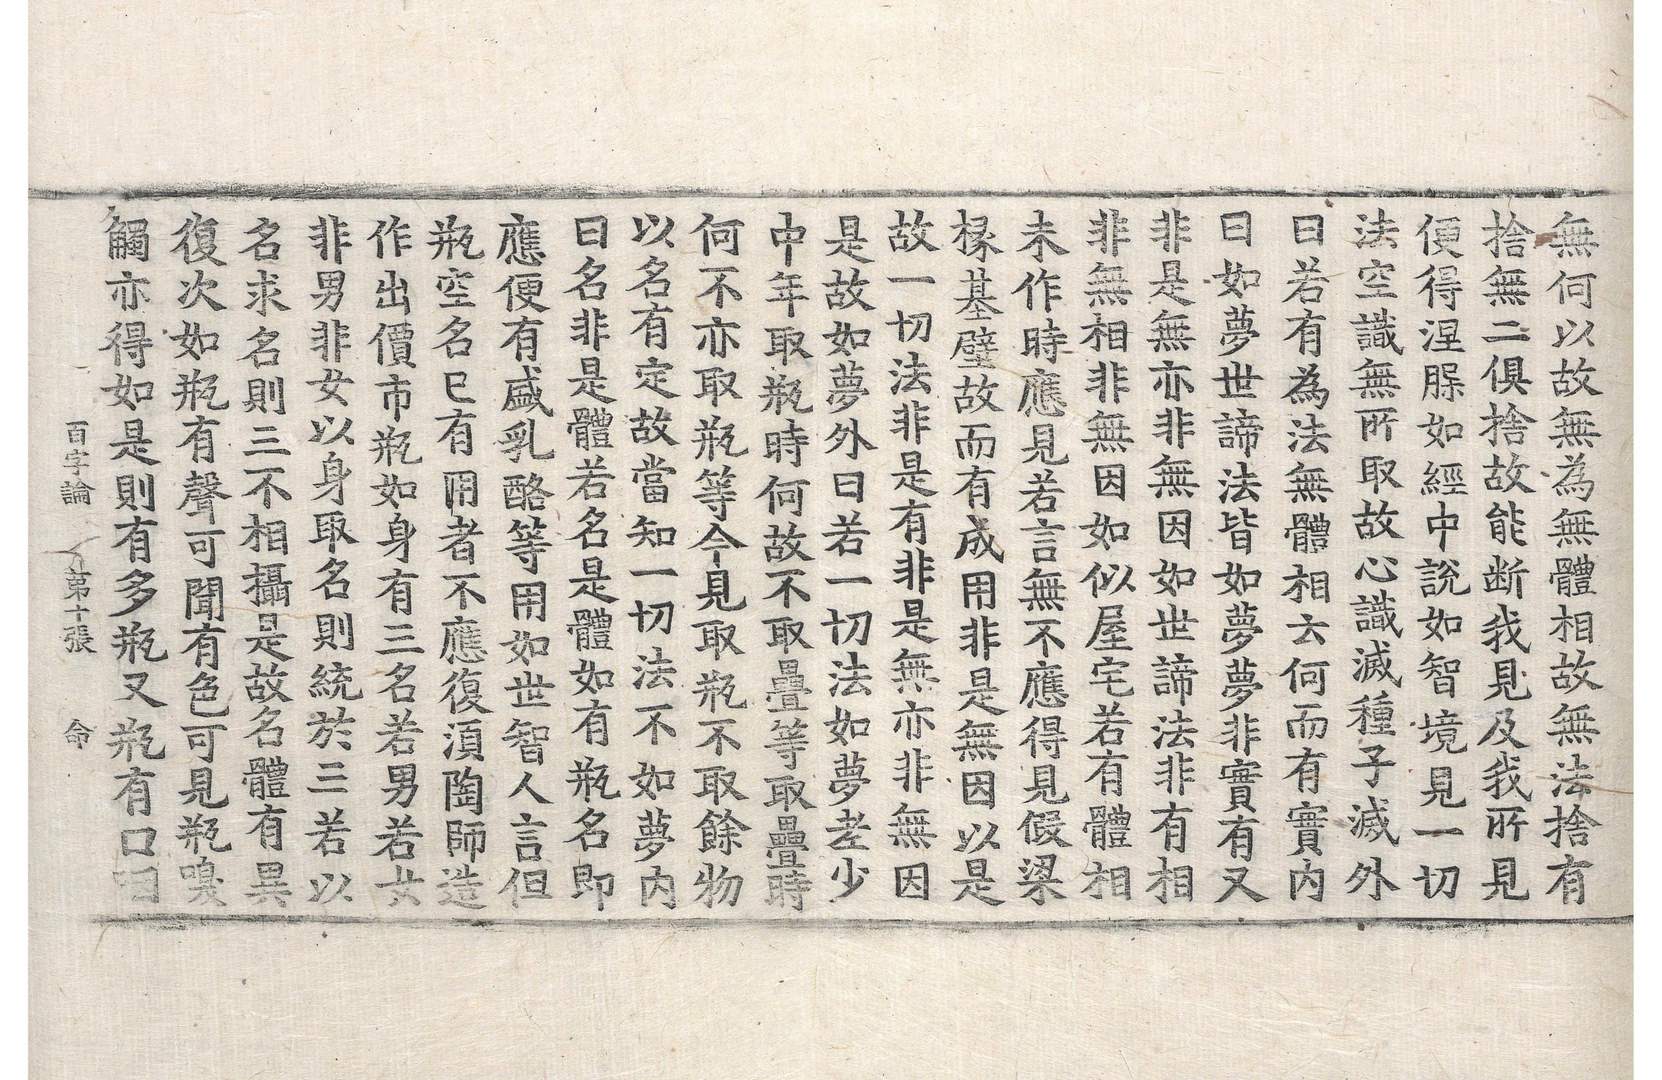 無何以故無為無體相故無法捨有
捨無二俱捨故能断我見及我所見
便得涅脲如經中說如智境見一切
法空識無所取故心識滅種子滅外
曰若有為法無體相云何而有實內
曰如夢世諦法皆如夢夢非實有又
非是無亦非無因如世諦法非有相
非無相非無因如似屋宅若有體相
未作時應見若言無不應得見假梁
椽基壁故而有成用非是無因以是
故一切法非是有非是無亦非無因
是故如夢外曰若一切法如夢老少
中年取瓶時何故不取疊等取疊時
何不亦取瓶等今見取瓶不取餘物
以名有定故當知一切法不如夢內
曰名非是體若名是體如有瓶名即
應便有盛乳酪等用如世智人言但
瓶空名已有用者不應復須陶師造
作出價市瓶如身有三名若男若女
非男非女以身取名則統於三若以
名求名則三不相攝是故名體有異
復次如瓶有聲可聞有色可見瓶嗅
觸亦得如是則有多瓶又瓶有口咽
百字論 第十張 命